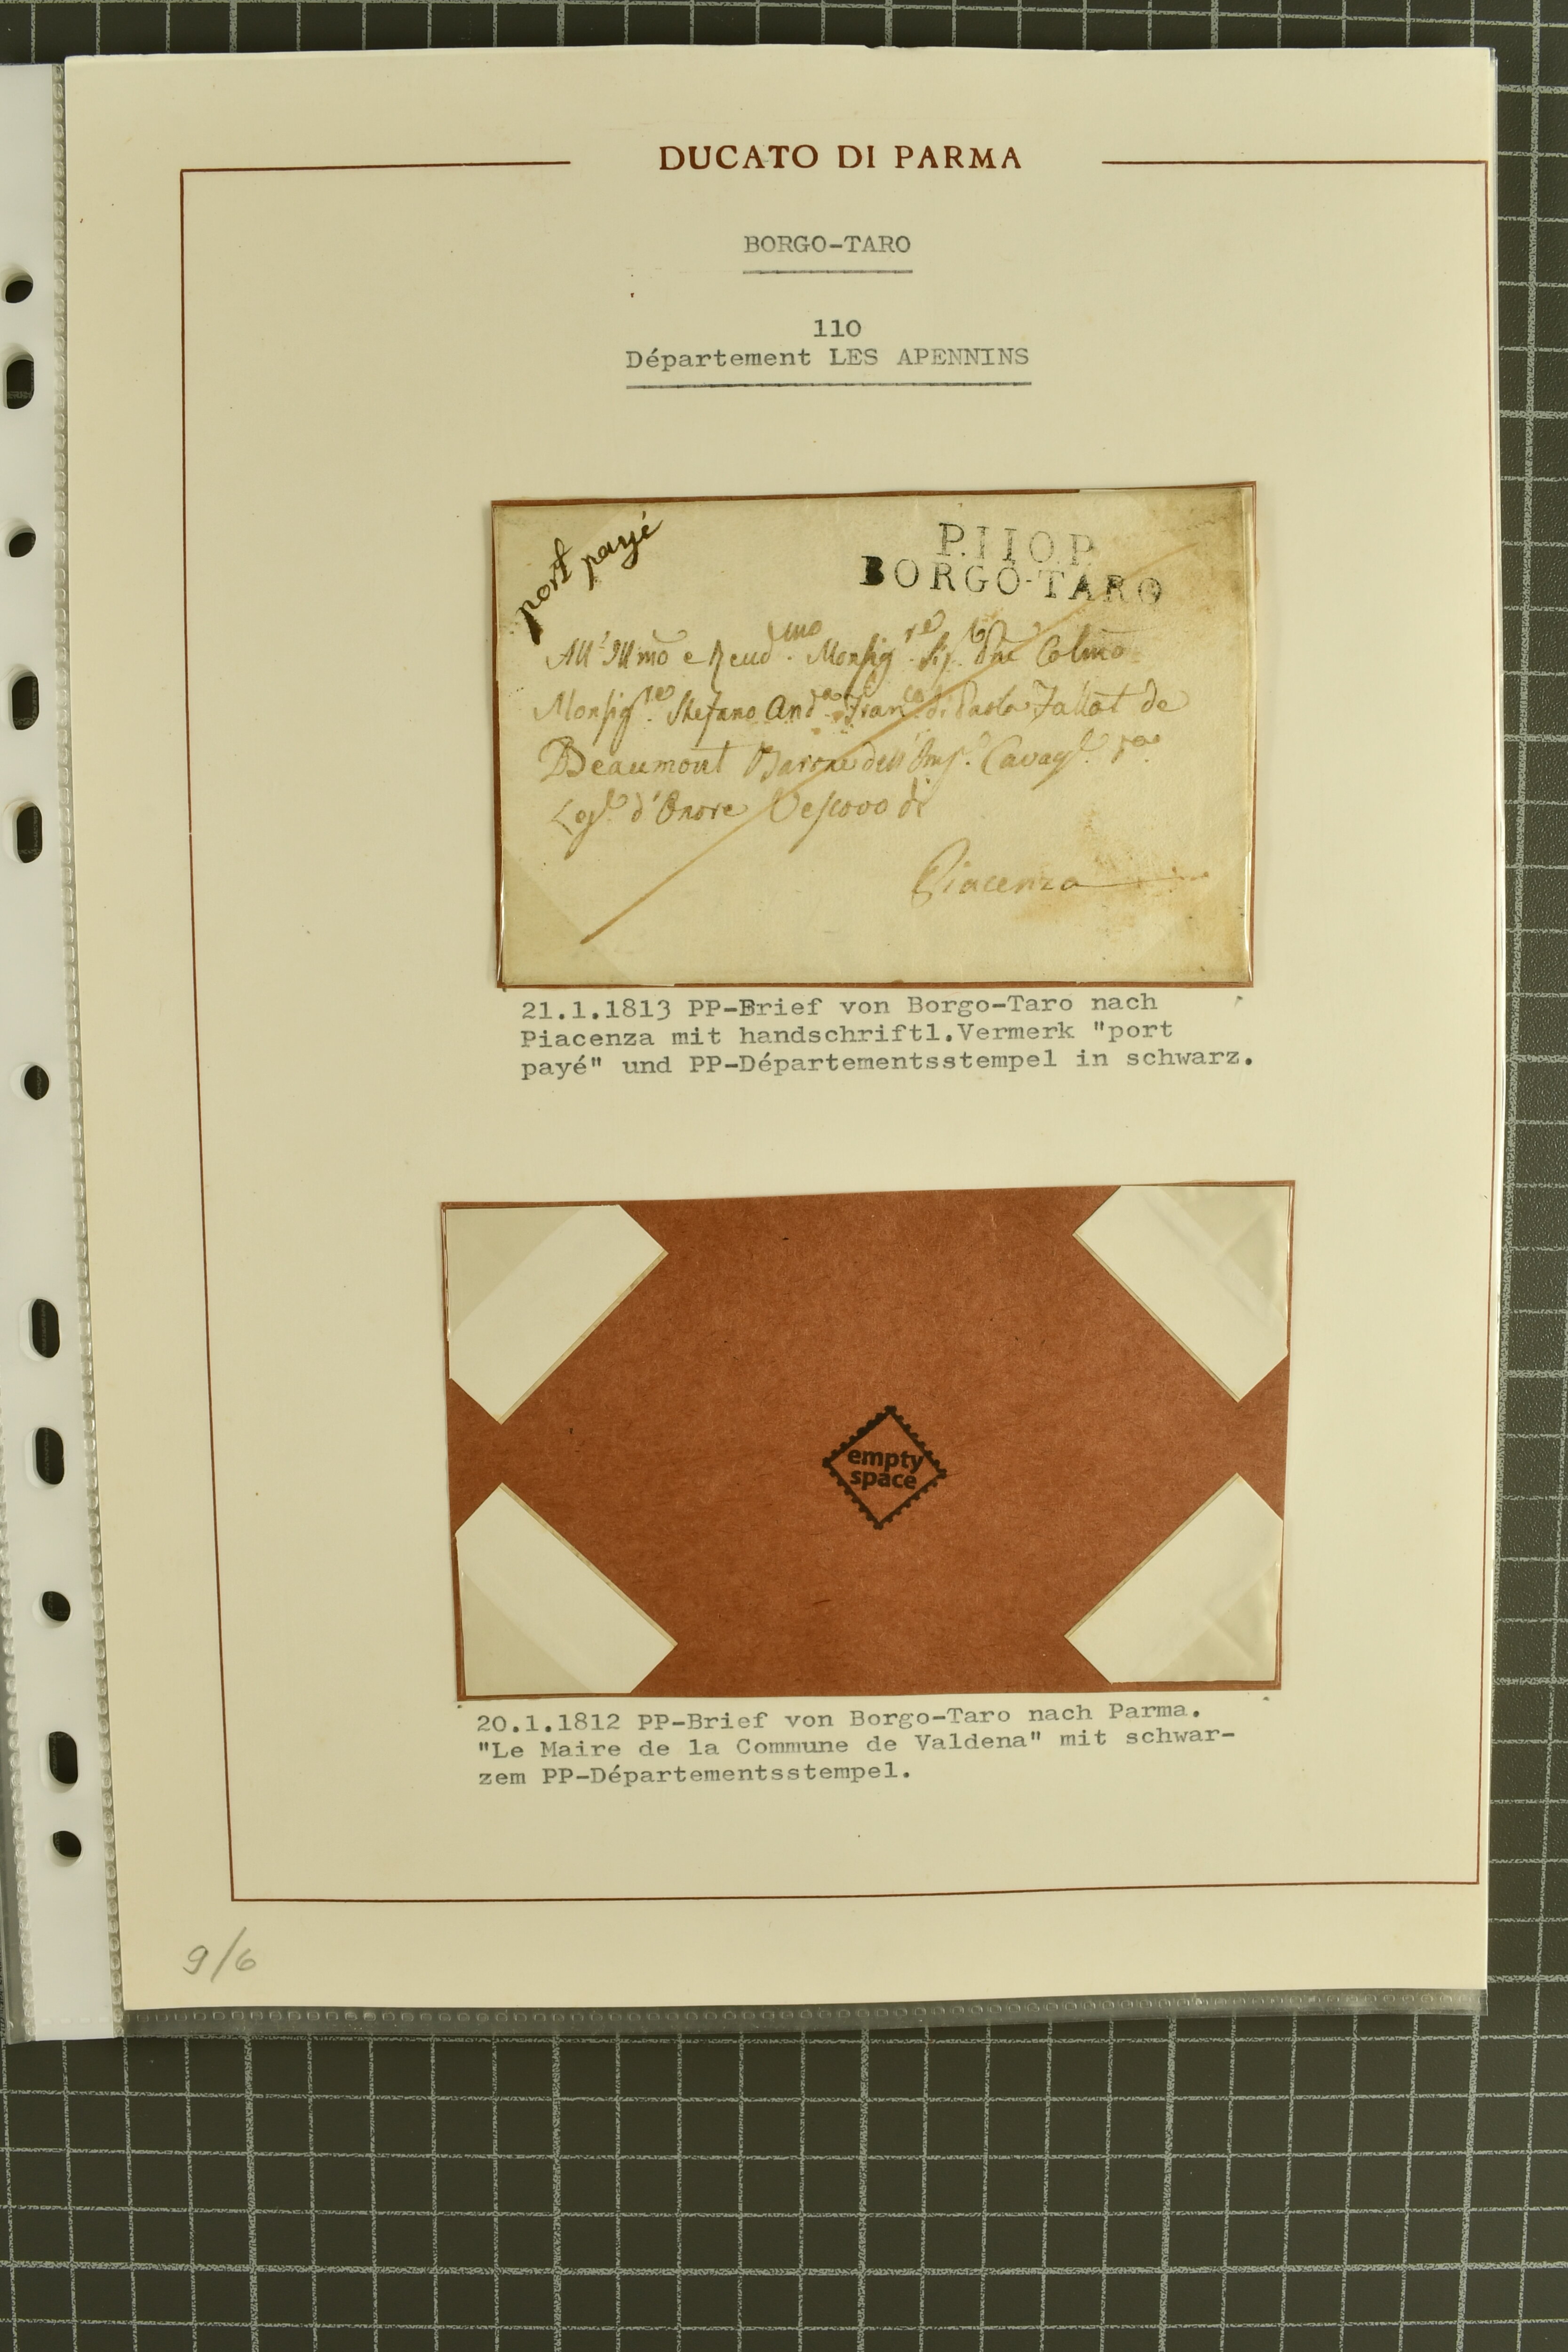 DUCATO DI PARMA
BORGO-TARO
110
Département LES APENNINS
port payé
P.110.P.
BORGO-TARO
All' Illmo e Reud.mo Monsig.re Sig. Colmo
Monsig.re Stefano And.a Fran.co di Paola Fallot de
Beaumont Barone dell' Imp.o Cavag.e
Leg.e d'Onore Vescovo di
Piacenza
21.1.1813 PP-Brief von Borgo-Taro nach
Piacenza mit handschriftl.Vermerk "port
payé" und PP-Départementsstempel in schwarz.
empty
space
20.1.1812 PP-Brief von Borgo-Taro nach Parma.
"Le Maire de la Commune de Valdena" mit schwar-
zem PP-Départementsstempel.
9/6